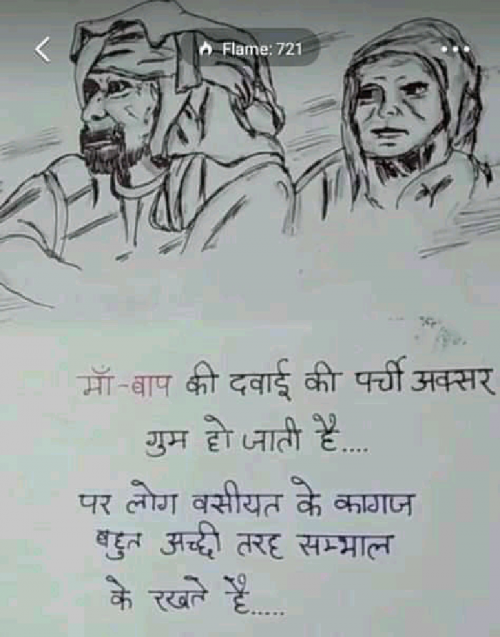 Flame: 721
माँ-बाप की दवाई की पर्ची अक्सर
गुम हो जाती है....
पर लोग वसीयत के कागज
बहुत अच्छी तरह सम्भाल
के रखते हैं.....